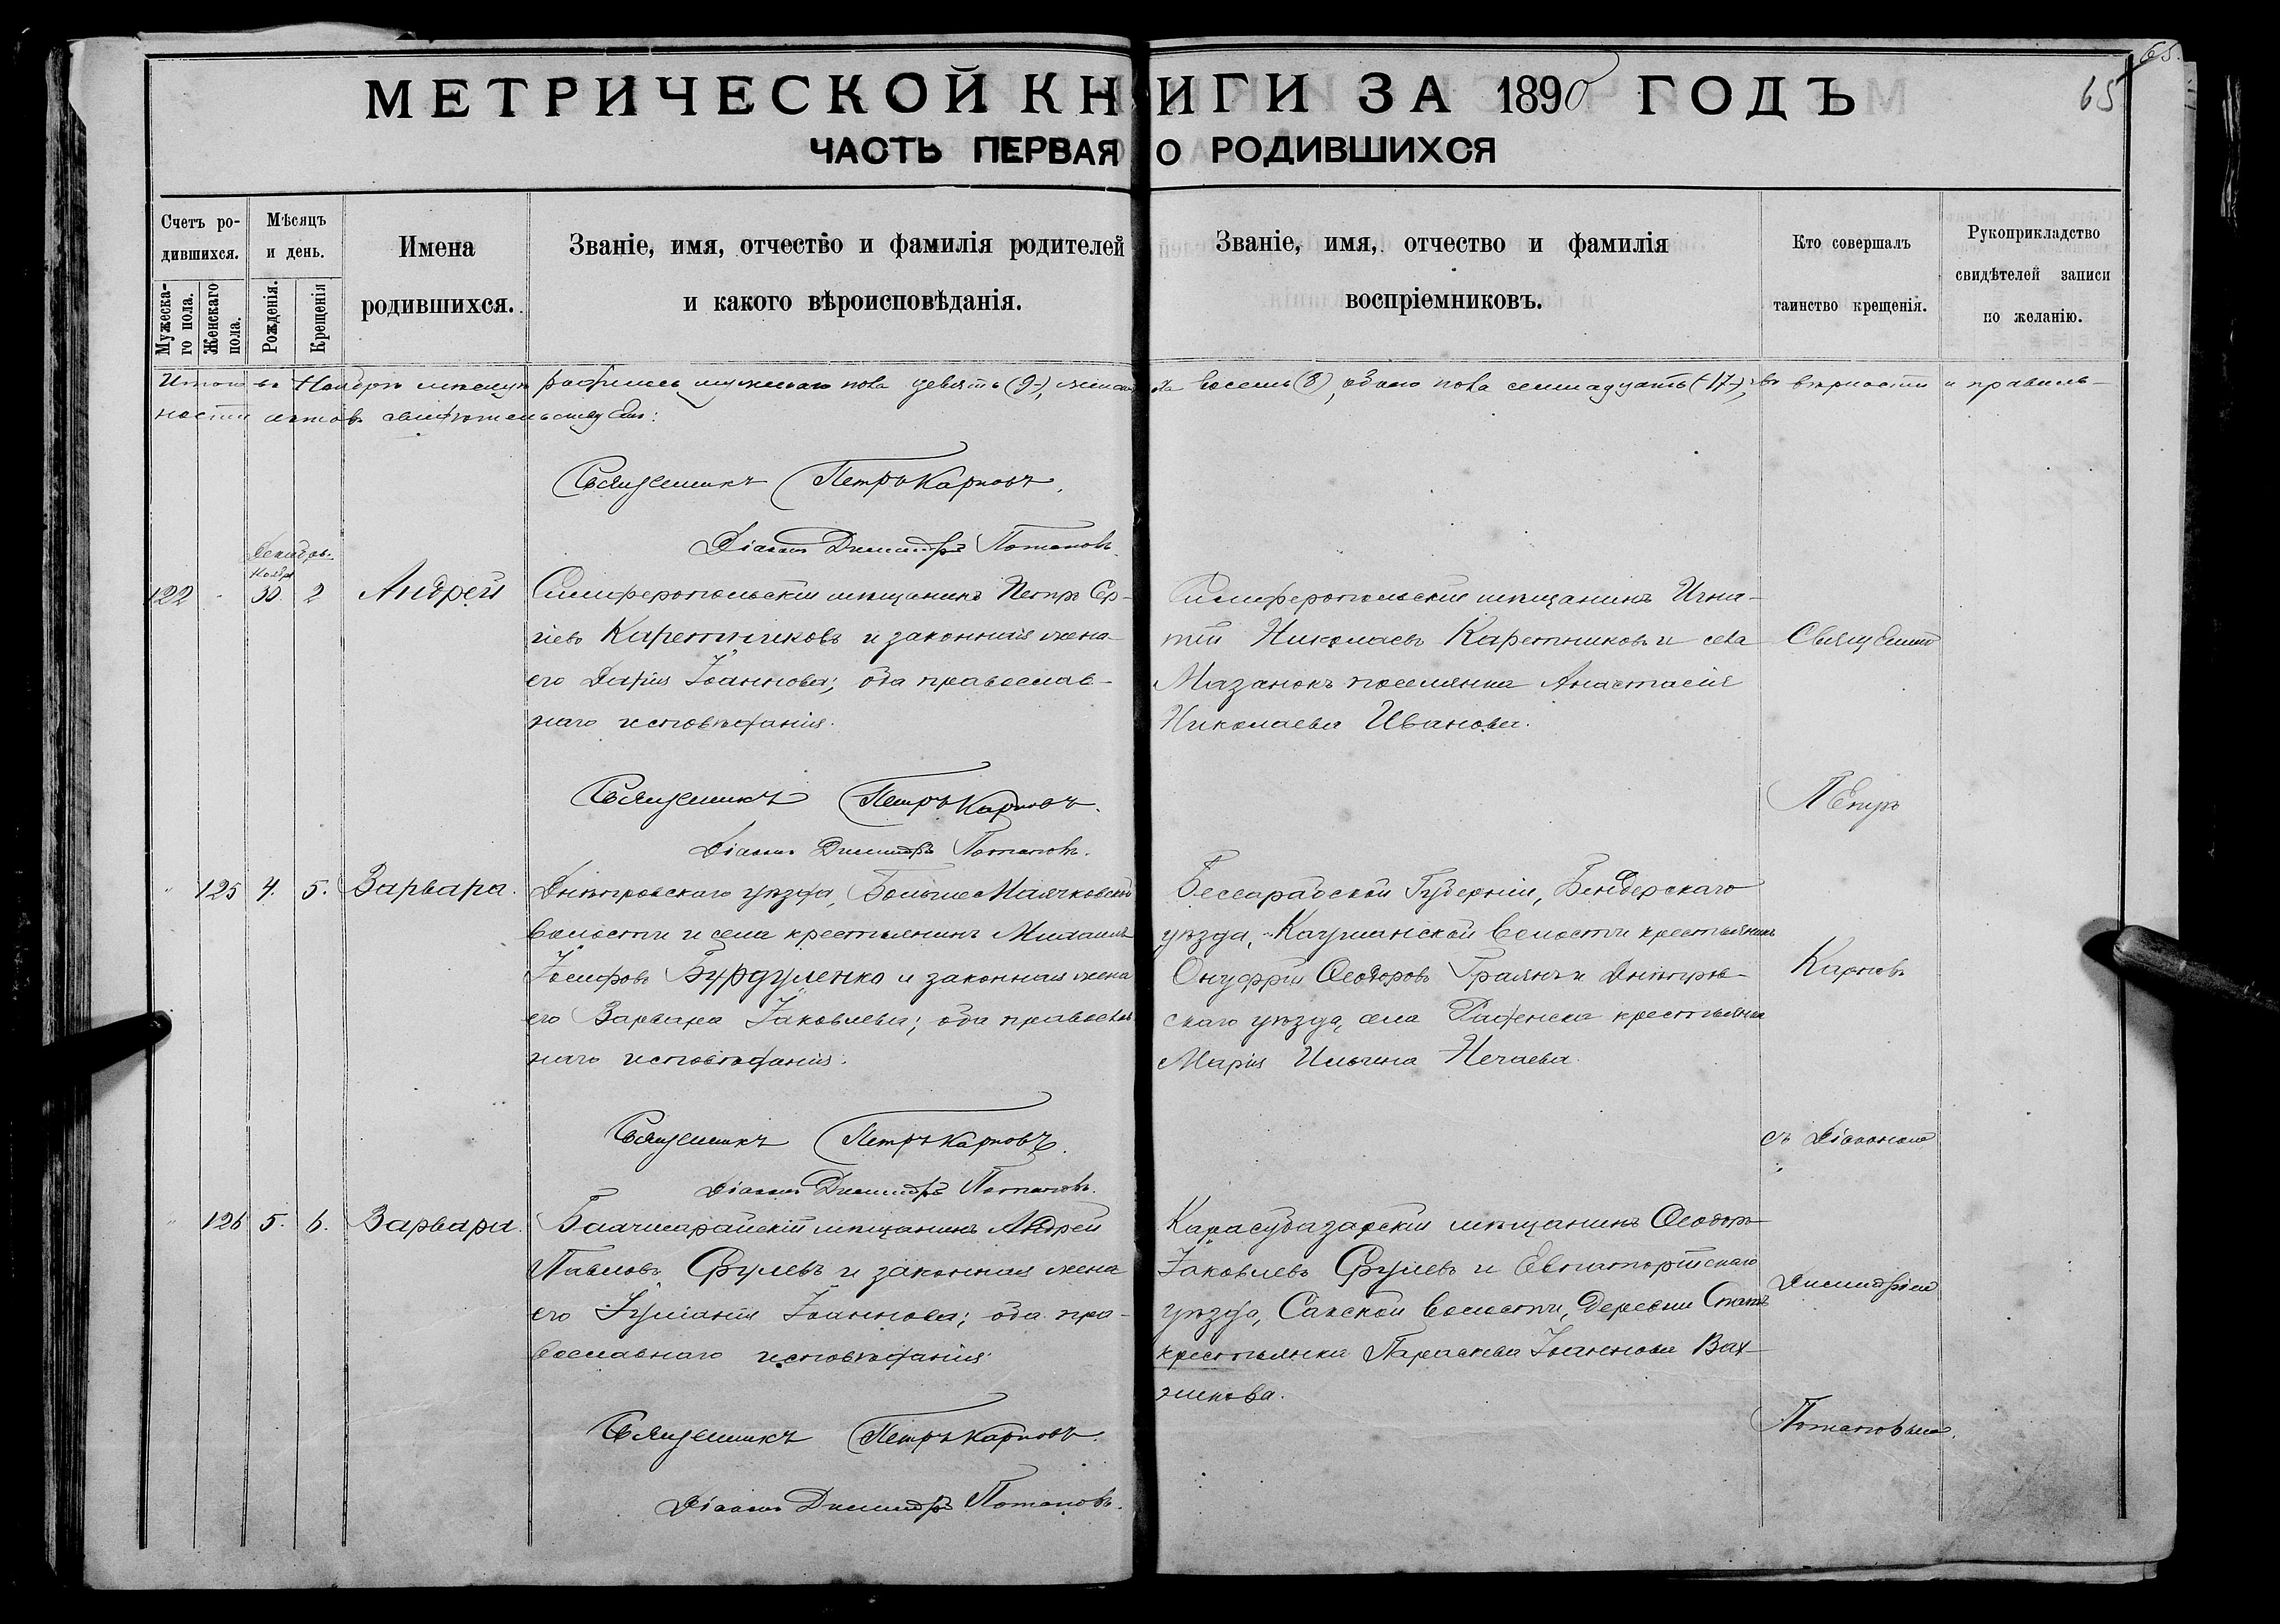 65.
65
МЕТРИЧЕСКОЙ КНИГИ ЗА 1890 ГОДЪ
ЧАСТЬ ПЕРВАЯ О РОДИВШИХСЯ
Счетъ родившихся.
Мужескаго пола.
Женскаго пола.
Мѣсяцъ и день.
Рожденія.
Крещенія
Имена
родившихся.
Званіе, имя, отчество и фамилія родителей
и какого вѣроисповѣданія.
Званіе, имя, отчество и фамилія
воспріемниковъ.
Кто совершалъ
таинство крещенія.
Рукоприкладство
свидѣтелей записи
по желанію.
Итого въ Ноябрѣ мѣсяцѣ родилось мужескаго пола девять (9), женска восемь (8), обоего пола семнадцать (17), въ вѣрности и правиль-
ности актовъ свидѣтельствуемъ:
Священникъ Петръ Карповъ.
Діаконъ Димитрій Потаповъ.
Декабрь.
Ноября
122 30. 2 Андрей
Симферопольскій мѣщанинъ Петръ Сер-
гіевъ Каретниковъ и законная жена
его Дарія Іоаннова; оба православ-
наго исповѣданія.
Симферопольскій мѣщанинъ Игна-
тій Николаевъ Каретниковъ и села
Мазанокъ поселянка Анастасія
Николаева Иванова.
Священникъ Петръ Карповъ.
Діаконъ Димитрій Потаповъ.
" 125 4. 5. Варвара.
Днѣпровскаго уѣзда, Больше Маячковской
волости и села крестьянинъ Михаилъ
Іосифовъ Бурдуленко и законная жена
его Варвара Іаковлева; оба православ
наго исповѣданія.
Бессарабской Губерніи, Бендерскаго
уѣзда, волости крестьянинъ
Онуфрій Ѳеодоровъ и Днѣпров-
скаго уѣзда, села крестьянка
Марія Ильина Нечаева.
Священникъ Петръ Карповъ.
Діаконъ Димитрій Потаповъ.
" 126 5. 6. Варвара.
Бахчисарайскій мѣщанинъ Андрей
Павловъ и законная жена
его Іуліанія Іоаннова; оба пра-
вославнаго исповѣданія.
Карасубазарскій мѣщанинъ Ѳеодоръ
Іаковлевъ и Евпаторійскаго
уѣзда, Сакской волости, деревни
крестьянка Параскева Іоаннова Вах-
никова.
Священникъ Петръ Карповъ.
Діаконъ Димитрій Потаповъ.
Священникъ
Петръ
Карповъ
съ Діакономъ
Димитріемъ
Потаповымъ.